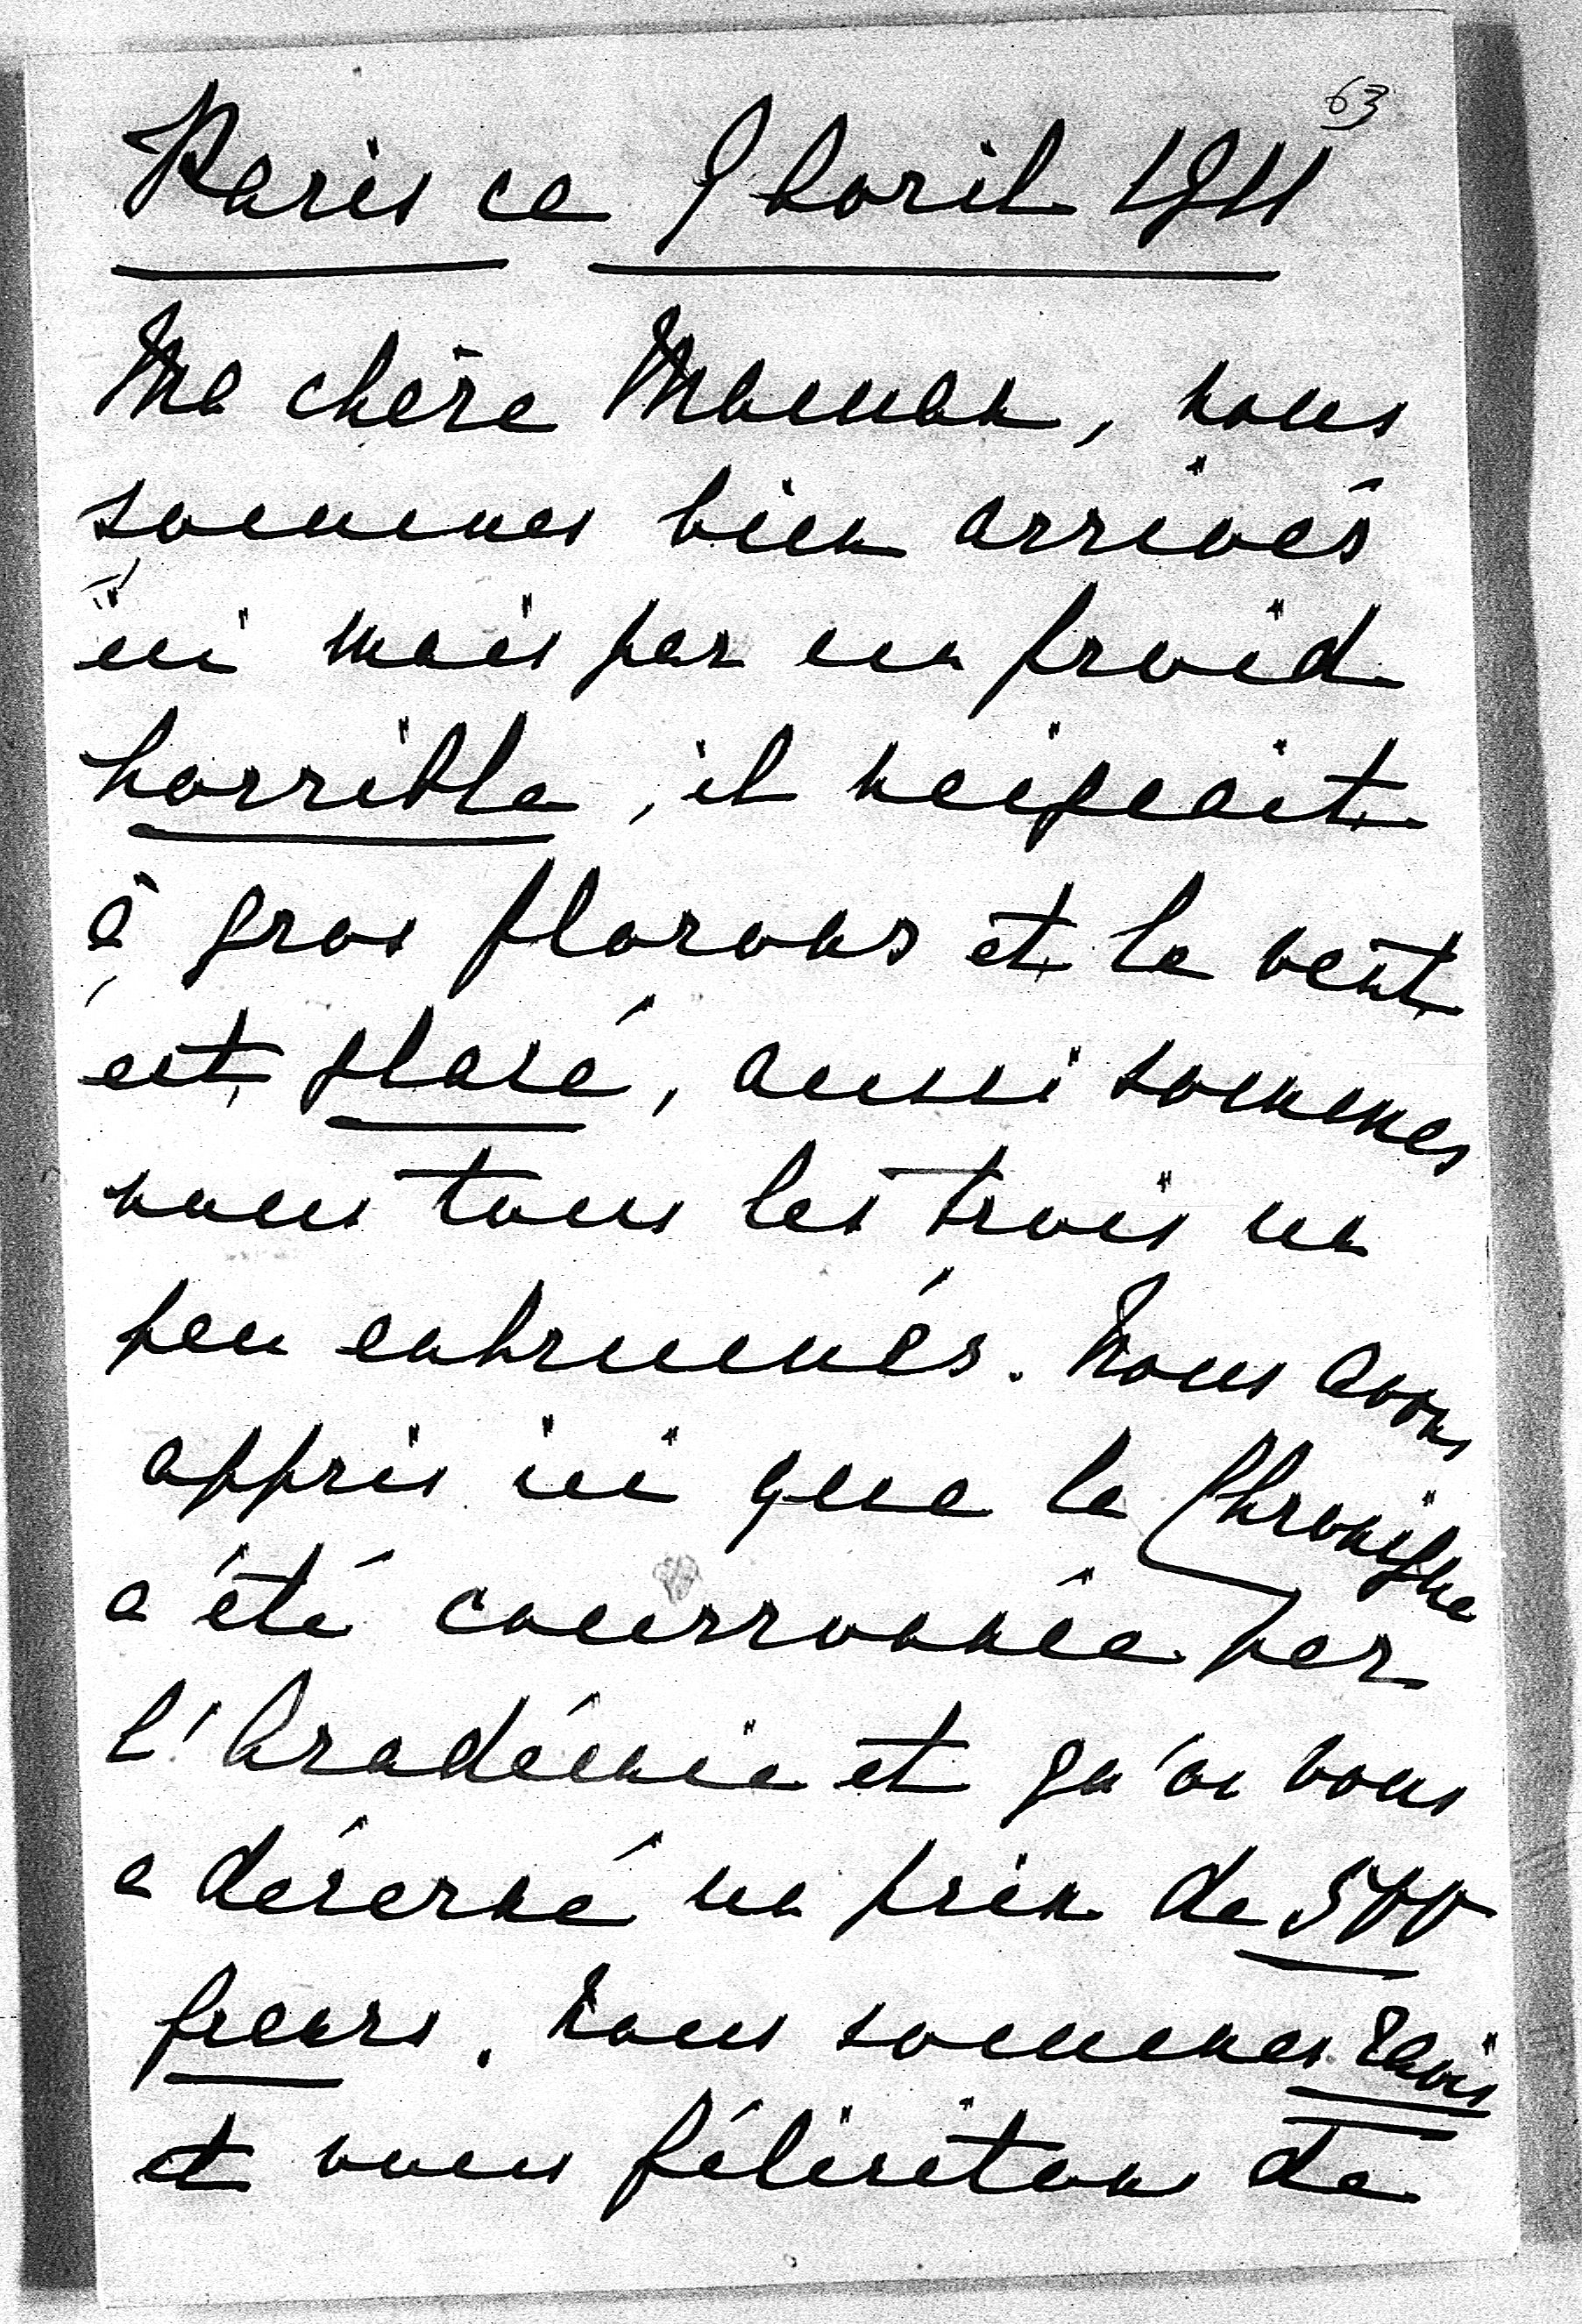 63
Paris ce 9 Avril 1911
Ma chère Maman, nous
sommes bien arrivés
ici mais par un froid
horrible, il neigeait
à gros flocons et le vent
est glacé, aussi sommes
nous tous les trois un
peu enhrumés. Nous avons
appris ici que la Chronique
a été courronnée par
l'Académie et qu'on vous
a décerné un prix de 500
francs. Nous sommes ravis
et vous félicitons de